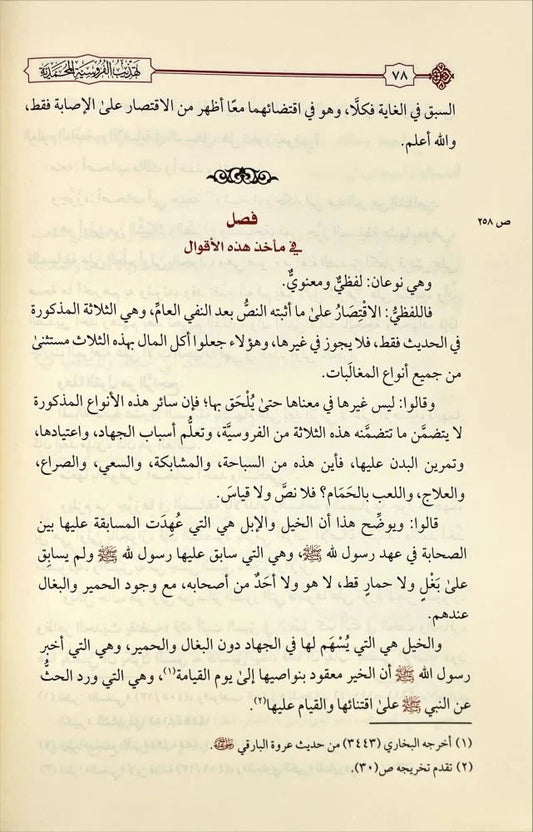 ٧٨
تهذيب الفروسية المحمدية
السبق في الغاية فكلَّا، وهو في اقتضائهما معًا أظهر من الاقتصار علىٰ الإصابة فقط،
والله أعلم.
ص ٢٥٨
فصل
في مأخذ هذه الأقوال
وهي نوعان: لفظيٌّ ومعنويٌّ.
فاللفظيُّ: الاقْتِصَارُ علىٰ ما أثبته النصُّ بعد النفي العامِّ، وهي الثلاثة المذكورة
في الحديث فقط، فلا يجوز في غيرها، وهؤلاء جعلوا أكل المال بهذه الثلاث مستثنىٰ
من جميع أنواع المغالَبات.
وقالوا: ليس غيرها في معناها حتىٰ يُلْحَق بها؛ فإن سائر هذه الأنواع المذكورة
لا يتضمَّن ما تتضمَّنه هذه الثلاثة من الفروسيَّة، وتعلُّم أسباب الجهاد، واعتيادها،
وتمرين البدن عليها، فأين هذه من السباحة، والمشابكة، والسعي، والصراع،
والعلاج، واللعب بالحَمَام؟ فلا نصَّ ولا قياسَ.
قالوا: ويوضِّح هذا أن الخيل والإبل هي التي عُهِدَت المسابقة عليها بين
الصحابة في عهد رسول لله ﷺ، وهي التي سابق عليها رسول لله ﷺ ولم يسابِق
علىٰ بَغْلٍ ولا حمارٍ قط، لا هو ولا أحَدٌ من أصحابه، مع وجود الحمير والبغال
عندهم.
والخيل هي التي يُسْهَم لها في الجهاد دون البغال والحمير، وهي التي أخبر
رسول الله ﷺ أن الخير معقود بنواصيها إلىٰ يوم القيامة(١)، وهي التي ورد الحثُّ
عن النبي ﷺ علىٰ اقتنائها والقيام عليها(٢).
(١) أخرجه البخاري (٣٤٤٣) من حديث عروة البارقي رضي الله عنه.
(٢) تقدم تخريجه ص(٣٠).